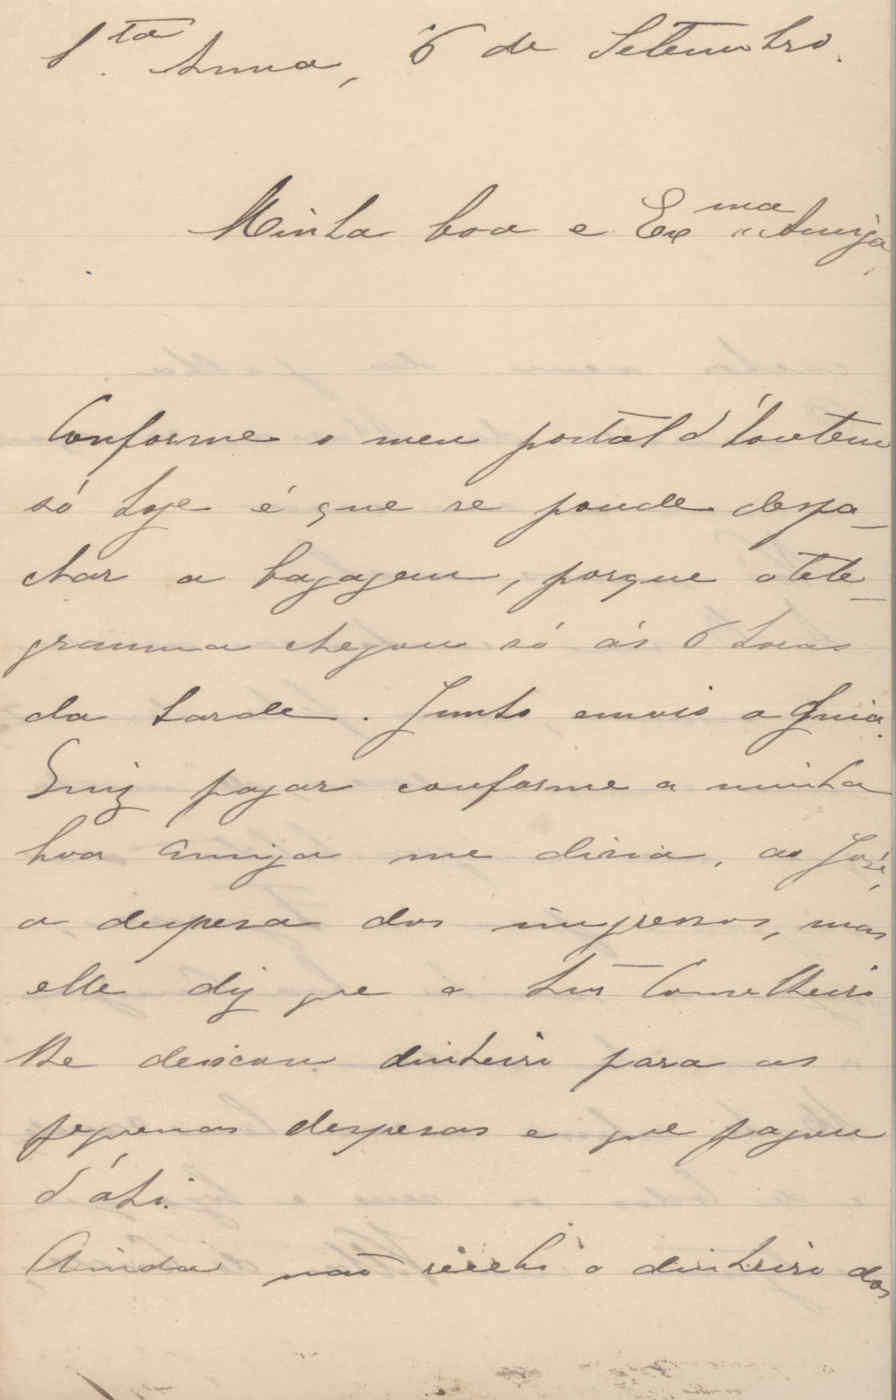 S.ta Anna, 6 de Setembro.
Minha boa e Exma Amiga,
Conforme o meu postal d'hontem
só hoje é que se poude despa-
char a bagagem, porque o tele-
gramma chegou só ás 6 horas
da tarde. Junto envio a guia.
Quiz pagar conforme a minha
boa amiga me dizia, ao José,
a despesa dos impressos, mas
elle diz que o Snr Conselheiro
lhe deixou dinheiro para as
pequenas despesas e que pagou
d'ahi.
Ainda não recebi o dinheiro dos